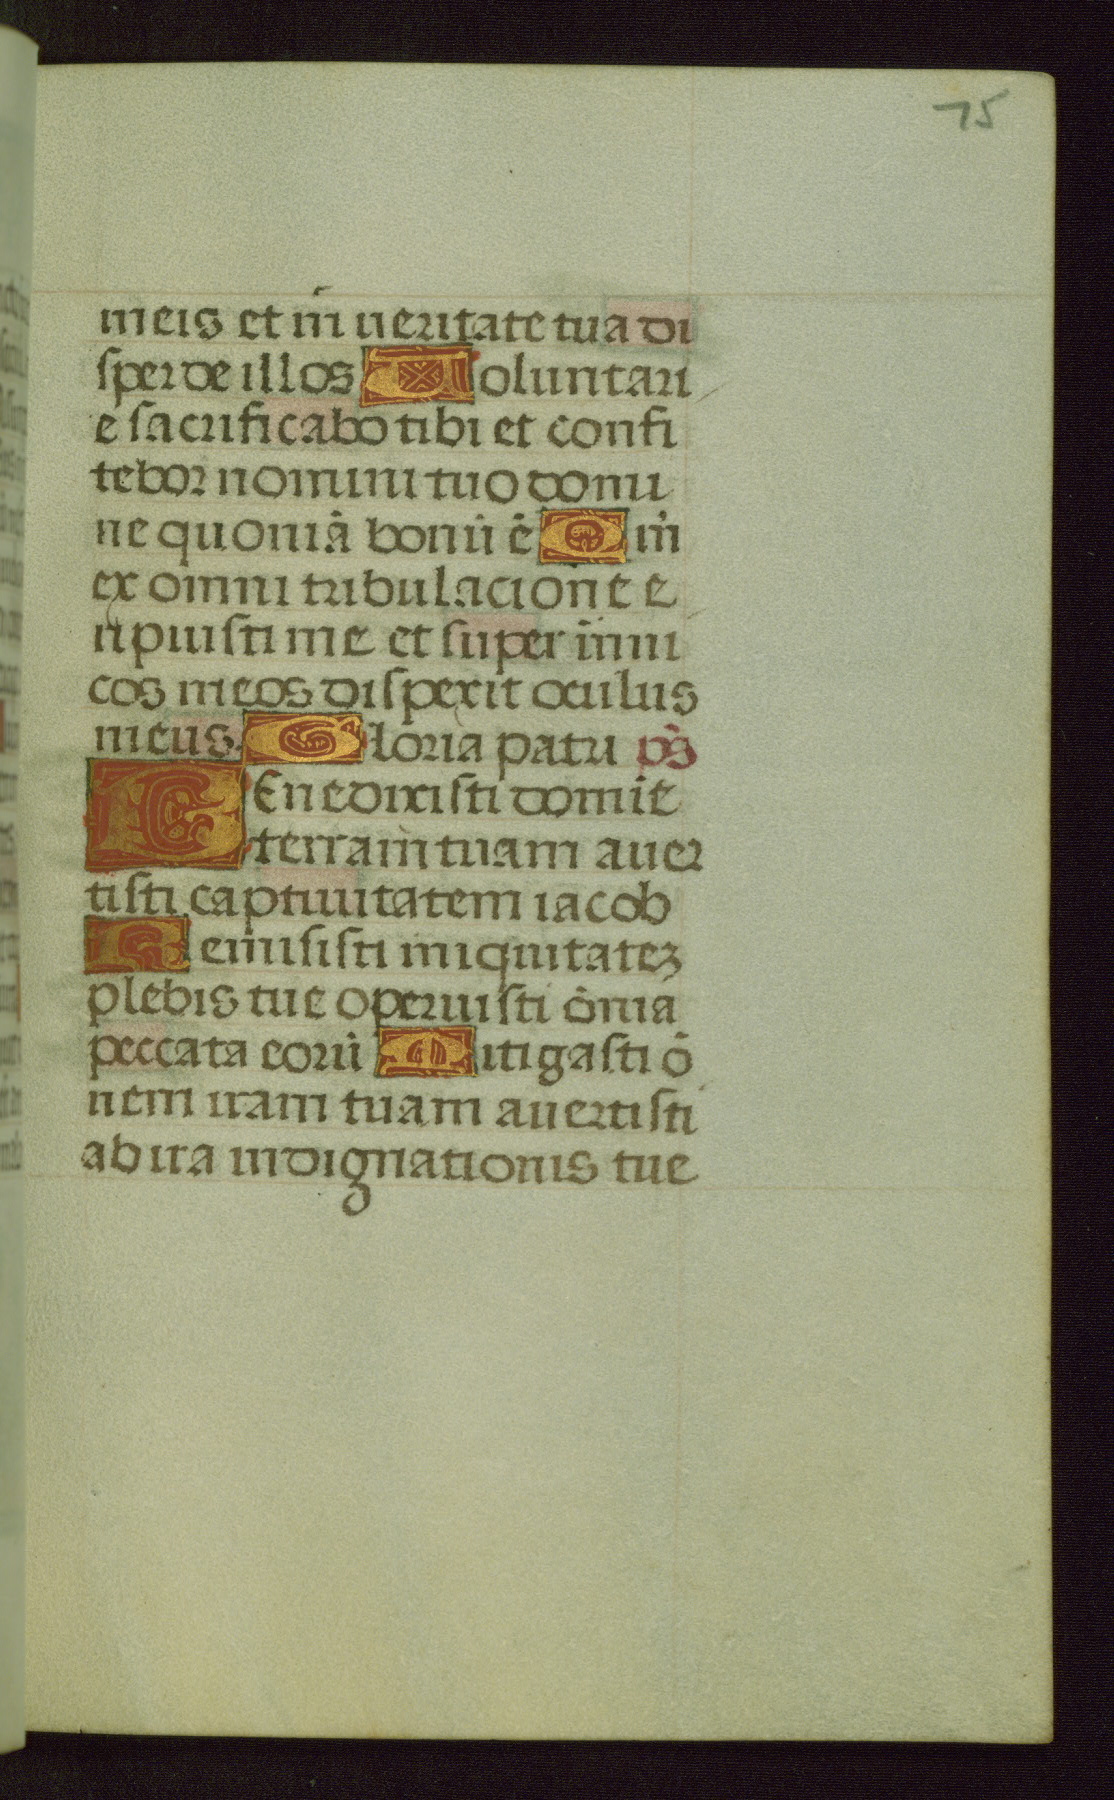 75
meis et in̄ ueritate tua di
sperde illos Uoluntari
e sacrificabo tibi et confi
tebor nomini tuo domi
ne quoniā bonū ē Qm̄
ex omni tribulacione e
ripuisti me et super inimi
cos meos dispexit oculus
meus. Gloria patri pŝ
BEnedixisti domīe
terram tuam auer
tisti captiuitatem iacob
Remisisti iniquitatez
plebis tue operuisti ōnia
peccata eorū Mitigasti ō
nem iram tuam auertisti
ab ira indignationis tue